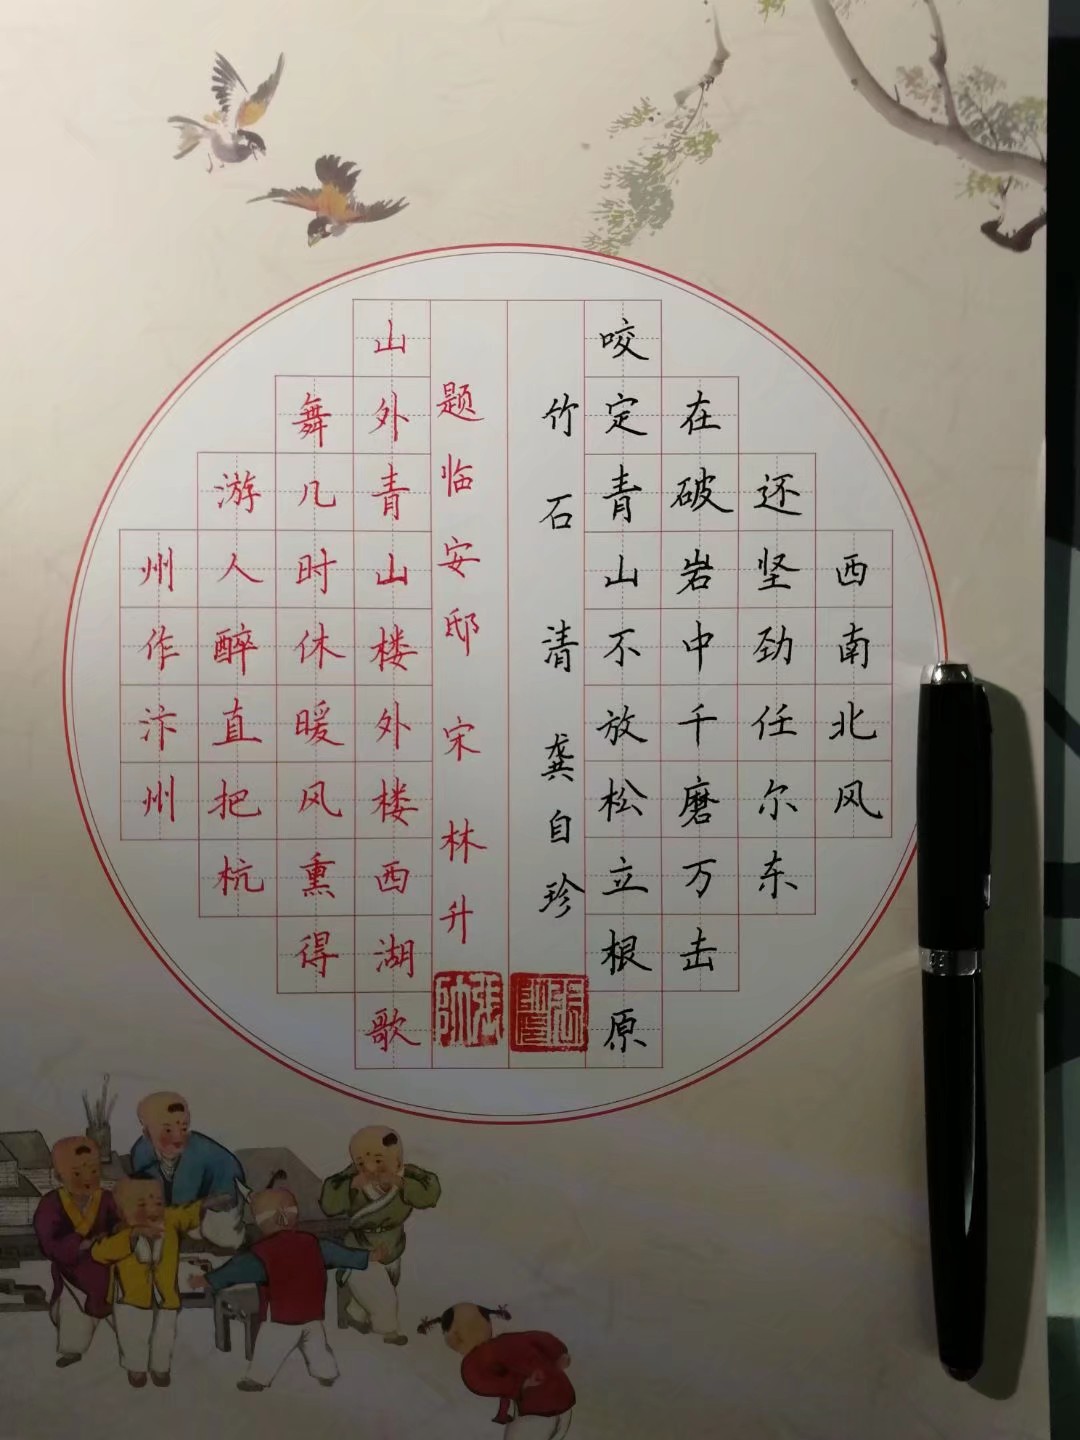 竹石 清 龚自珍
咬定青山不放松立根原
在破岩中千磨万击
还坚劲任尔东
西南北风
题临安邸 宋 林升
山外青山楼外楼西湖歌
舞几时休暖风熏得
游人醉直把杭
州作汴州